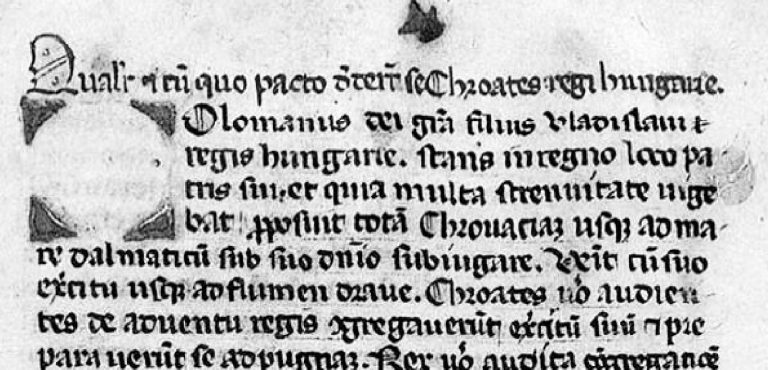 Qualr̄ ⁊ cū quo pacto d̄der̄t se Chroates regi hungarie.
Olomanus dei gr̄a filius vladislaui ⁊
regis hungarie. stans in regno loco pa
tris sui. et quia multa strenuitate uige
bat ꝓposuit totā Chrouaciaꝫ usqꝫ ad ma
re dalmaticū sub suo dn̄io subiugare. Uēit cū suo
ex̄citu usqꝫ ad flumen draue. Chroates ūo audien
tes de aduentu regis ꝯgregauerūt ex̄citū suū ⁊ pre
parauerūt se ad pugnaꝫ. Rex ūo audita